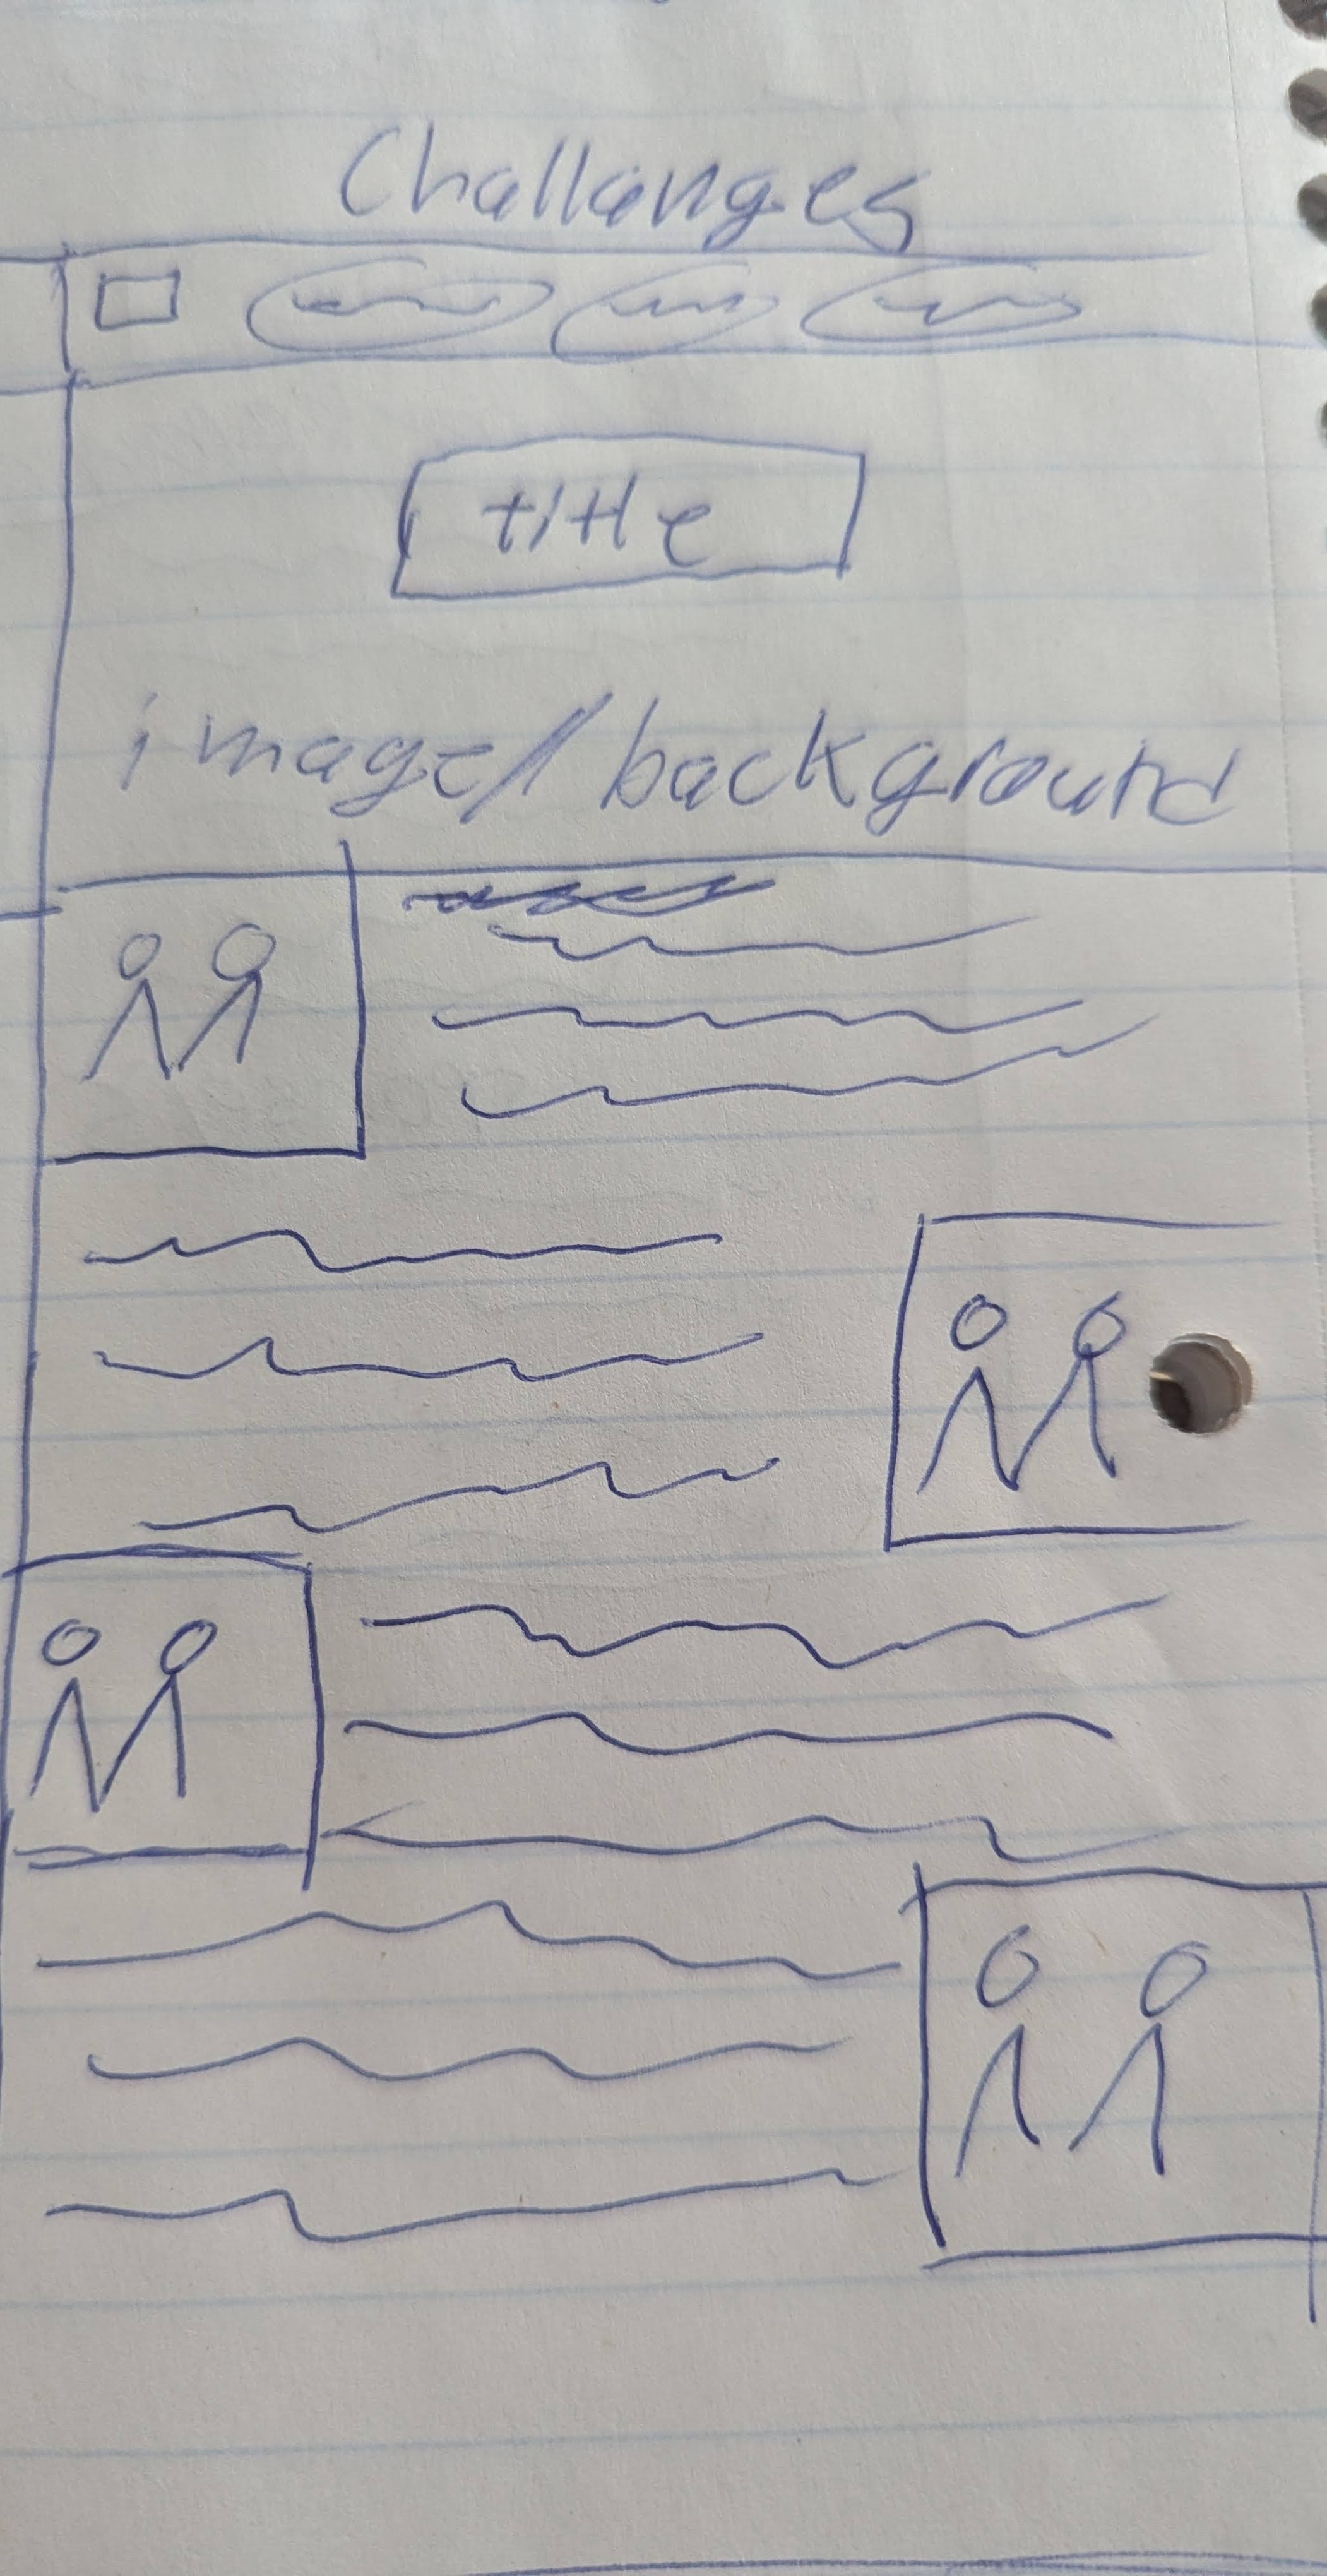 Challanges
title
image/background